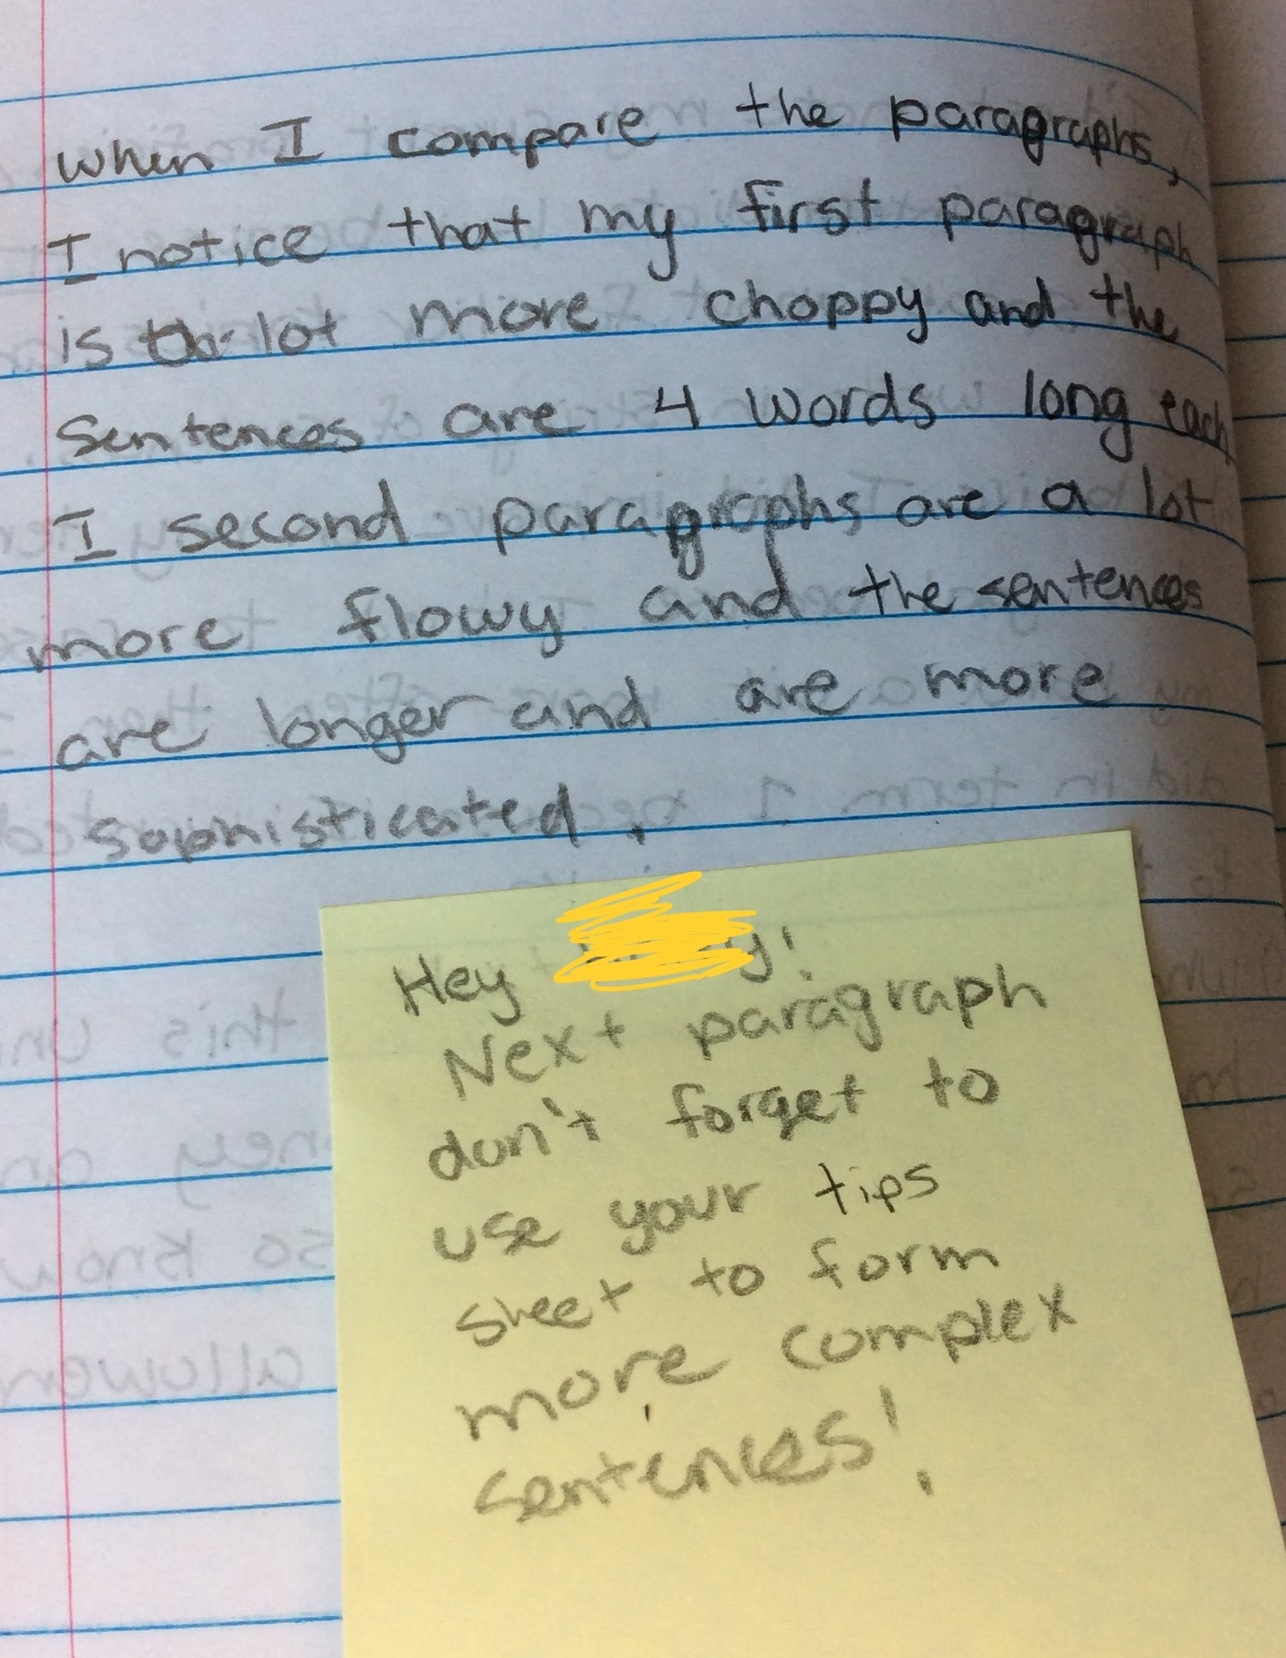 When I compare the paragraphs,
I notice that my first paragraph
is lot more choppy and the
sentences are 4 words long each
I second paragraphs are a lot
more flowy and the sentences
are longer and are more
sophisticated.
Hey
Next paragraph
don't forget to
use your tips
sheet to form
more complex
sentences!